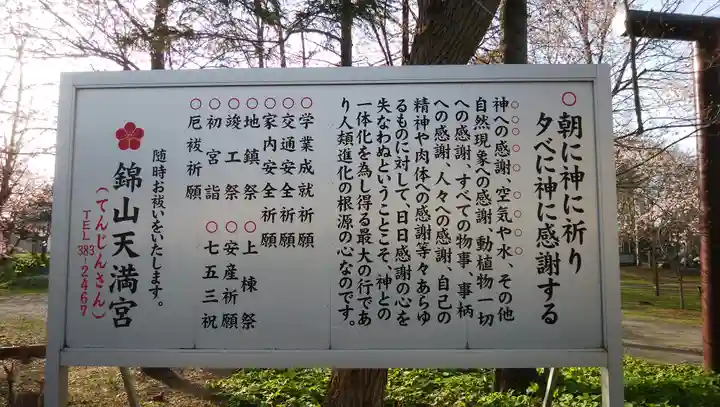 ○朝に神に祈り
夕べに神に感謝する
神への感謝、空気や水、その他
自然現象への感謝、動植物一切
への感謝、すべての物事、事柄
への感謝、人々への感謝、自己の
精神や肉体への感謝等々あらゆ
るものに対して、日日感謝の心を
失なわぬということこそ、神との
一体化を為し得る最大の行であ
り人類進化の根源の心なのです。
○学業成就祈願
○交通安全祈願
○家内安全祈願
○地鎮祭 ○上棟祭
○竣工祭 ○安産祈願
○初宮詣 ○七五三祝
○厄祓祈願
随時お祓いをいたします。
錦山天満宮
(てんじんさん)
TEL 383-2467